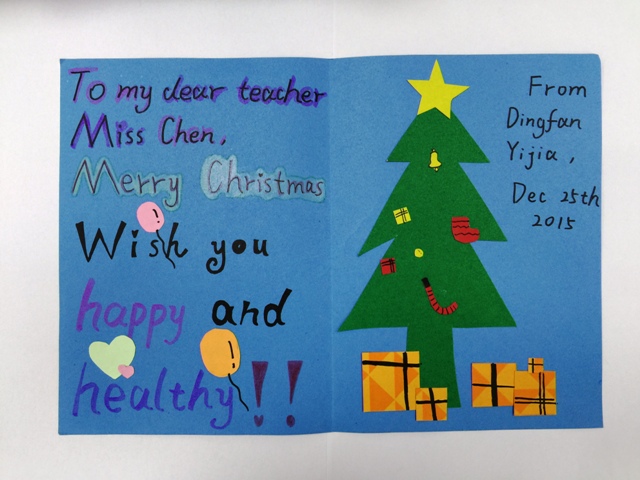 To my dear teacher
Miss Chen,
Merry Christmas
Wish you
happy and
healthy!!
From
Dingfan
Yijia,
Dec 25th
2015